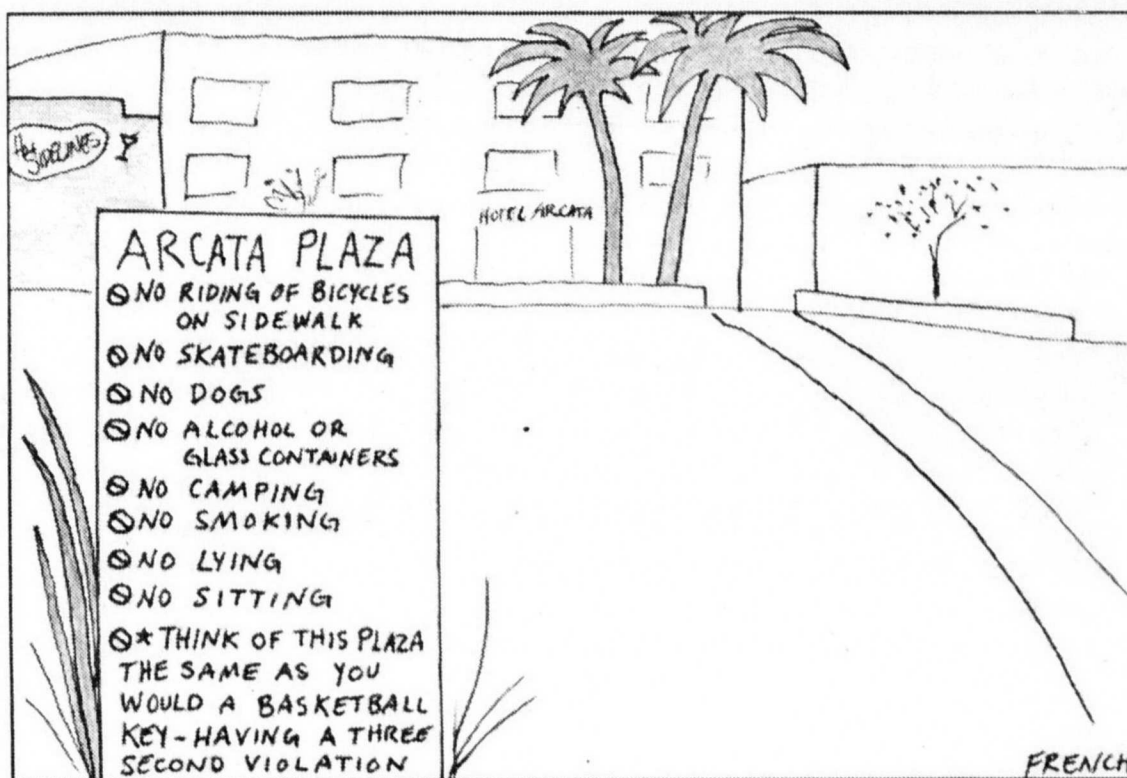 SIDELINES
HOTEL ARCATA
ARCATA PLAZA
NO RIDING OF BICYCLES
ON SIDEWALK
NO SKATEBOARDING
NO DOGS
NO ALCOHOL OR
GLASS CONTAINERS
NO CAMPING
NO SMOKING
NO LYING
NO SITTING
* THINK OF THIS PLAZA
THE SAME AS YOU
WOULD A BASKETBALL
KEY-HAVING A THREE
SECOND VIOLATION
FRENCH